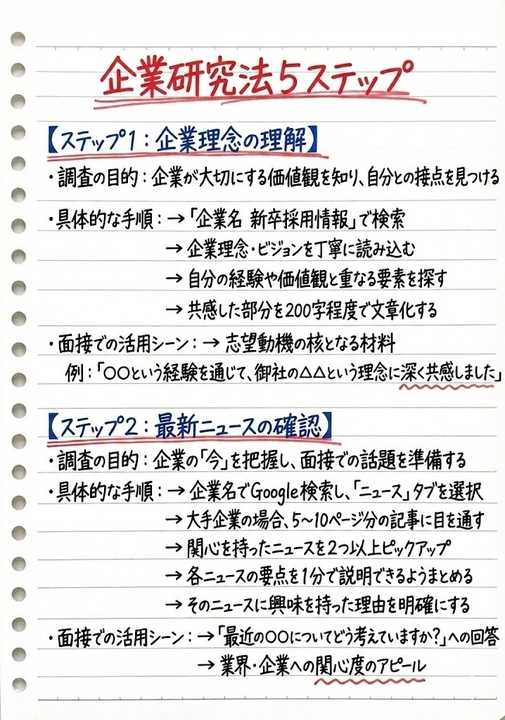 企業研究法5ステップ
【ステップ1：企業理念の理解】
・調査の目的：企業が大切にする価値観を知り、自分との接点を見つける
・具体的な手順：→「企業名 新卒採用情報」で検索
→ 企業理念・ビジョンを丁寧に読み込む
→ 自分の経験や価値観と重なる要素を探す
→ 共感した部分を200字程度で文章化する
・面接での活用シーン：→ 志望動機の核となる材料
例：「○○という経験を通じて、御社の△△という理念に深く共感しました」
【ステップ2：最新ニュースの確認】
・調査の目的：企業の「今」を把握し、面接での話題を準備する
・具体的な手順：→ 企業名でGoogle検索し、「ニュース」タブを選択
→ 大手企業の場合、5～10ページ分の記事に目を通す
→ 関心を持ったニュースを2つ以上ピックアップ
→ 各ニュースの要点を1分で説明できるようまとめる
→ そのニュースに興味を持った理由を明確にする
・面接での活用シーン：→「最近の○○についてどう考えていますか？」への回答
→ 業界・企業への関心度のアピール